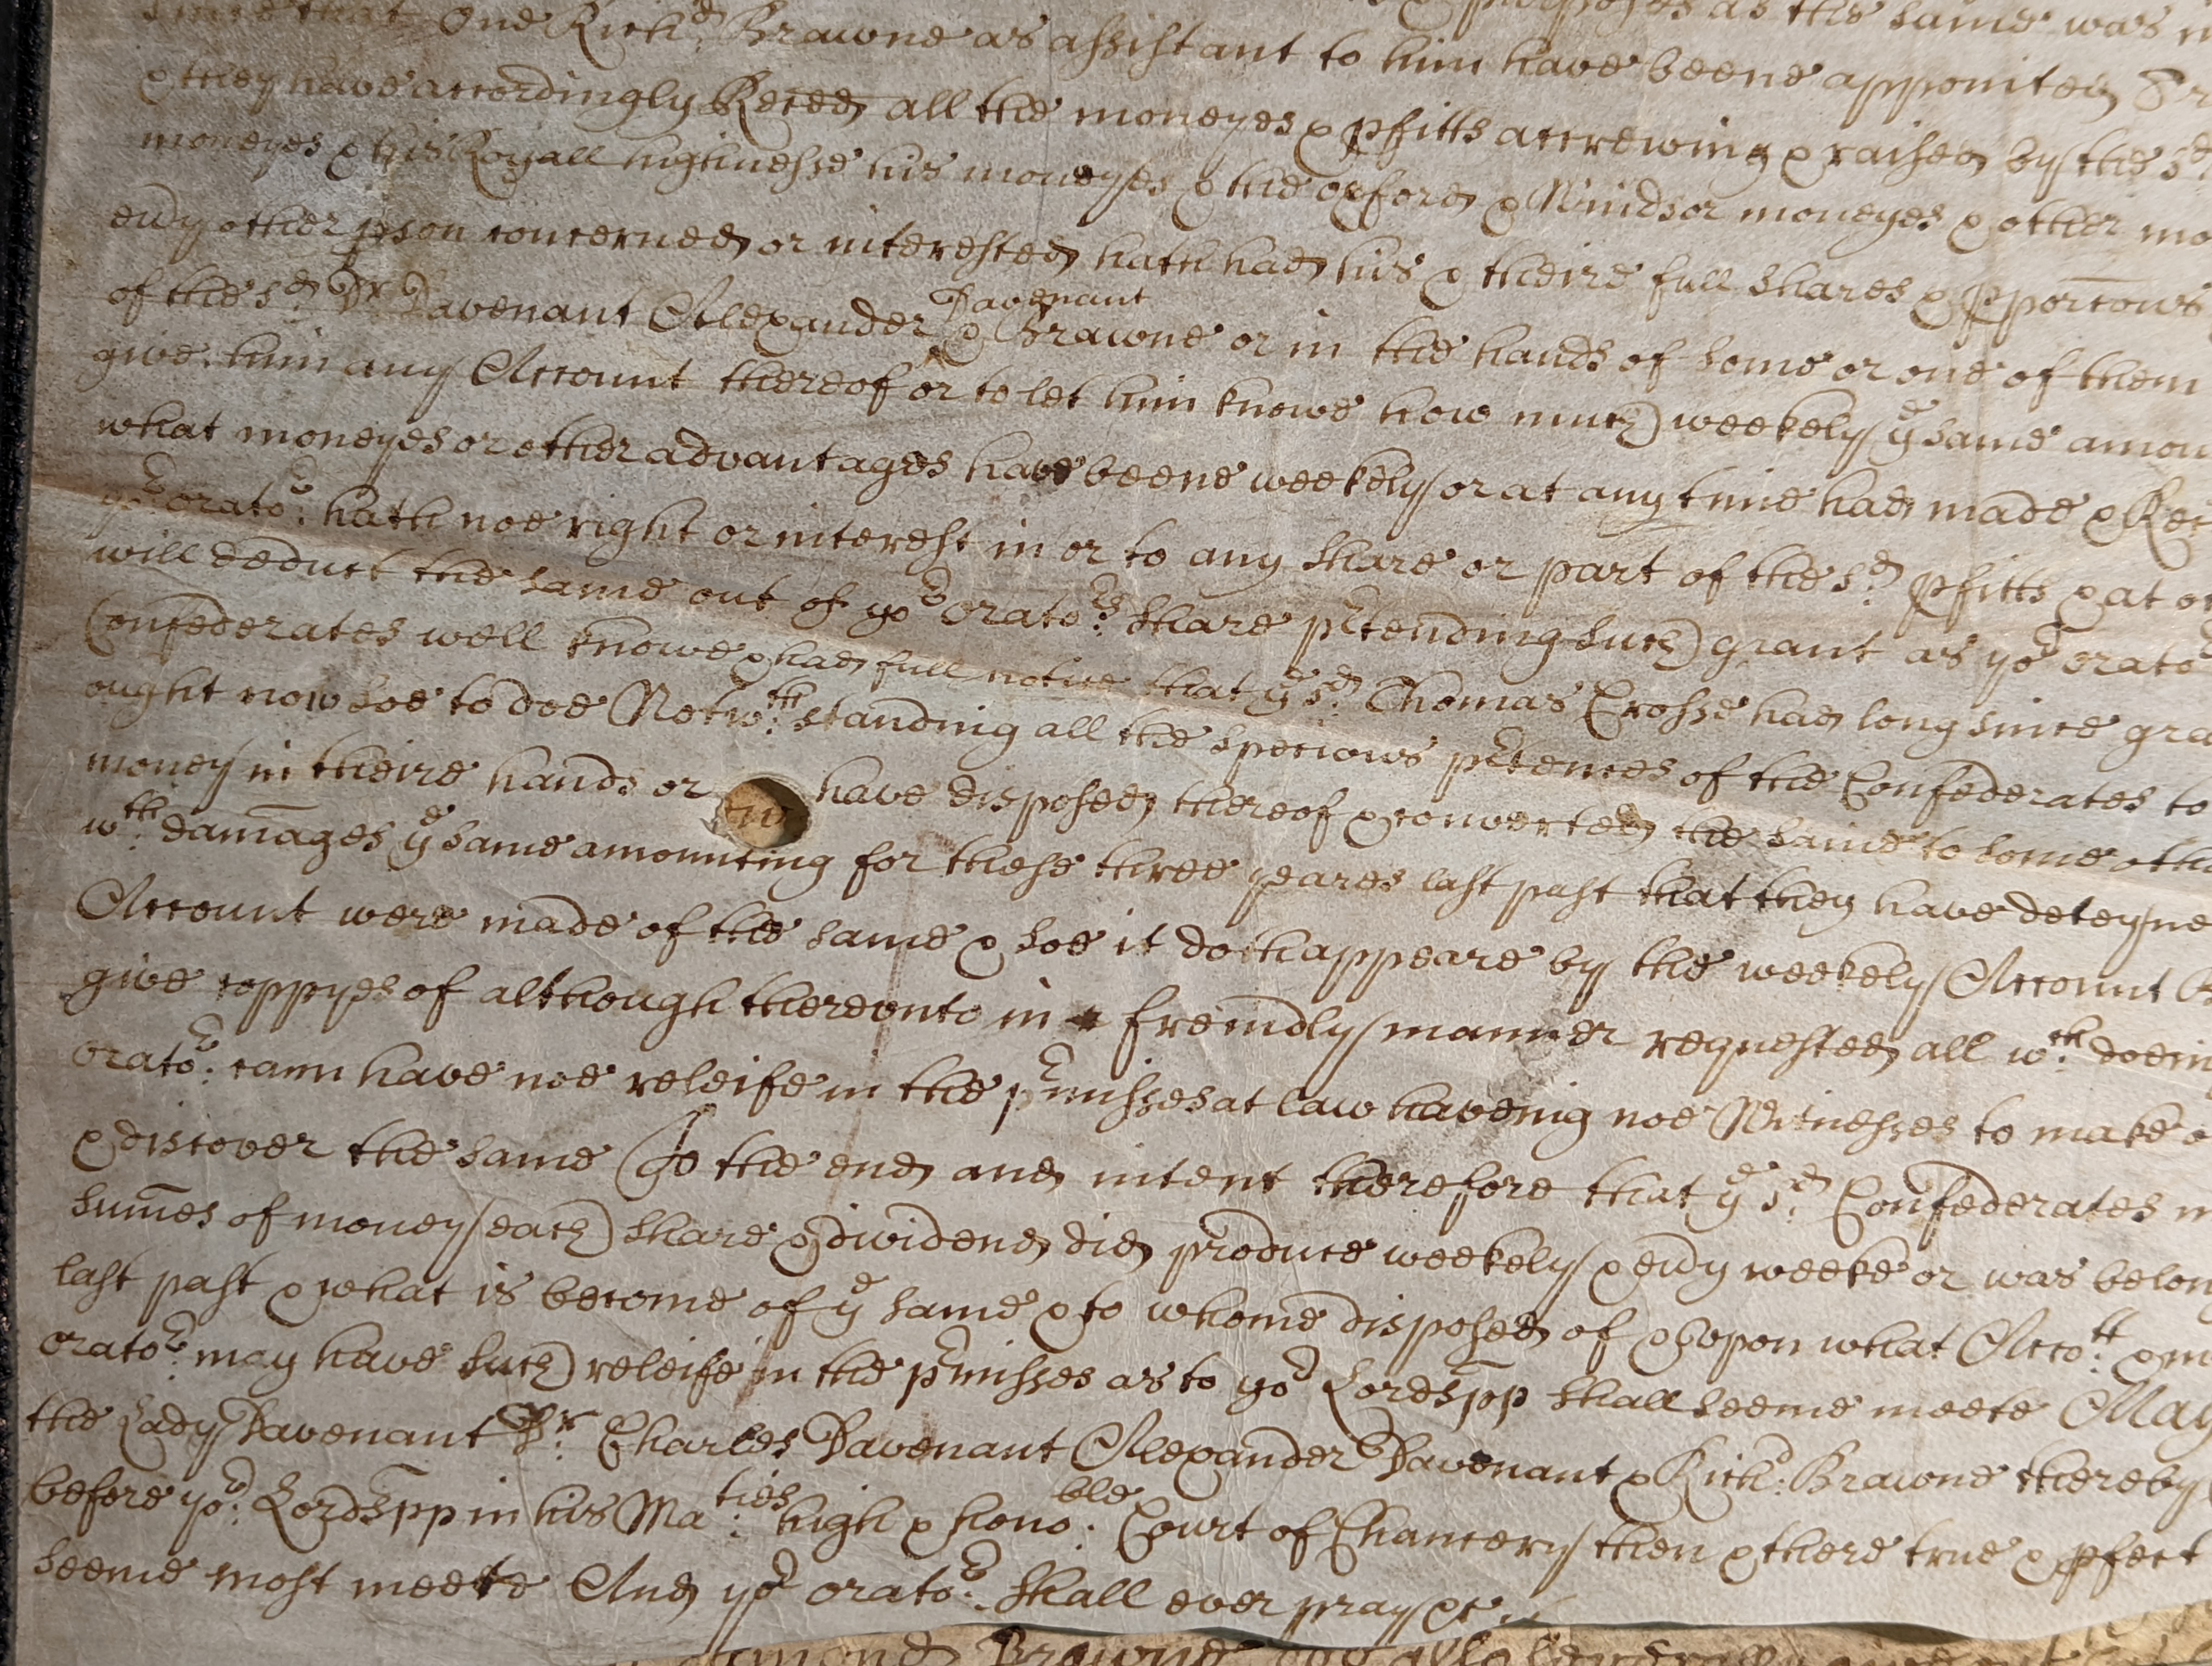 since that One Rich^d: Brawne as assistant to him have beene appointed
& purposes as the same was
& they have accordingly Reced all the moneyes & pfitts accrewing & raised by the s^d
moneyes & his Royall highnesse his moneyes & the oxford & Windsor moneyes & other mo
eu~y other pson concerned or interested hath had his & theire full shares & pporc̄ons
of the s^d: D^r Davenant Alexander Davenant & Brawne or in the hands of some or one of them
give him any Account thereof or to let him knowe how much weekely y^e same amou
what moneyes or other advantages have beene weekely or at any time had made & Rec
yo^r orato^r: hath noe right or interest in or to any share or part of the s^d: pfitts & at o
will deduct the same out of yo^r orato^rs: share p^rtending such grant as yo^r orato^r
Confederates well knowe & had full notice that y^e s^d: Thomas Crosse had long since gra
ought now soe to doe Notw^th:standing all the specious p^rtences of the Confederates to
money in theire hands or have disposed thereof & converted the same to some othe
w^th: dam̄ages y^e same amounting for these three yeares last past that they have deteyne
Account were made of the same & soe it doth appeare by the weekely Account
give coppyes of although therevnto in a freindly manner requested all w^ch: doein
orato^r: cann have noe releife in the p^rmisses at law haveing noe Witnesses to make
& discover the same To the end and intent therefore that y^e s^d: Confederates m
sum̄es of money each share & dividend did produce weekely & eu~y weeke or was belon
last past & what is become of y^e same & to whome disposed of & vpon what Acco^tt: &
orato^r: may have such releife in the p^rmisses as to yo^r Lordspp shall seeme meete May
the Lady Davenant D^r: Charles Davenant Alexander Davenant & Rich^d: Brawne thereby
before yo^r: Lordspp in his Ma^ties: high & hono^ble: Court of Chancery then & there true & pfect
seeme most meete And yo^r orato^r: shall ever pray &c
Browne